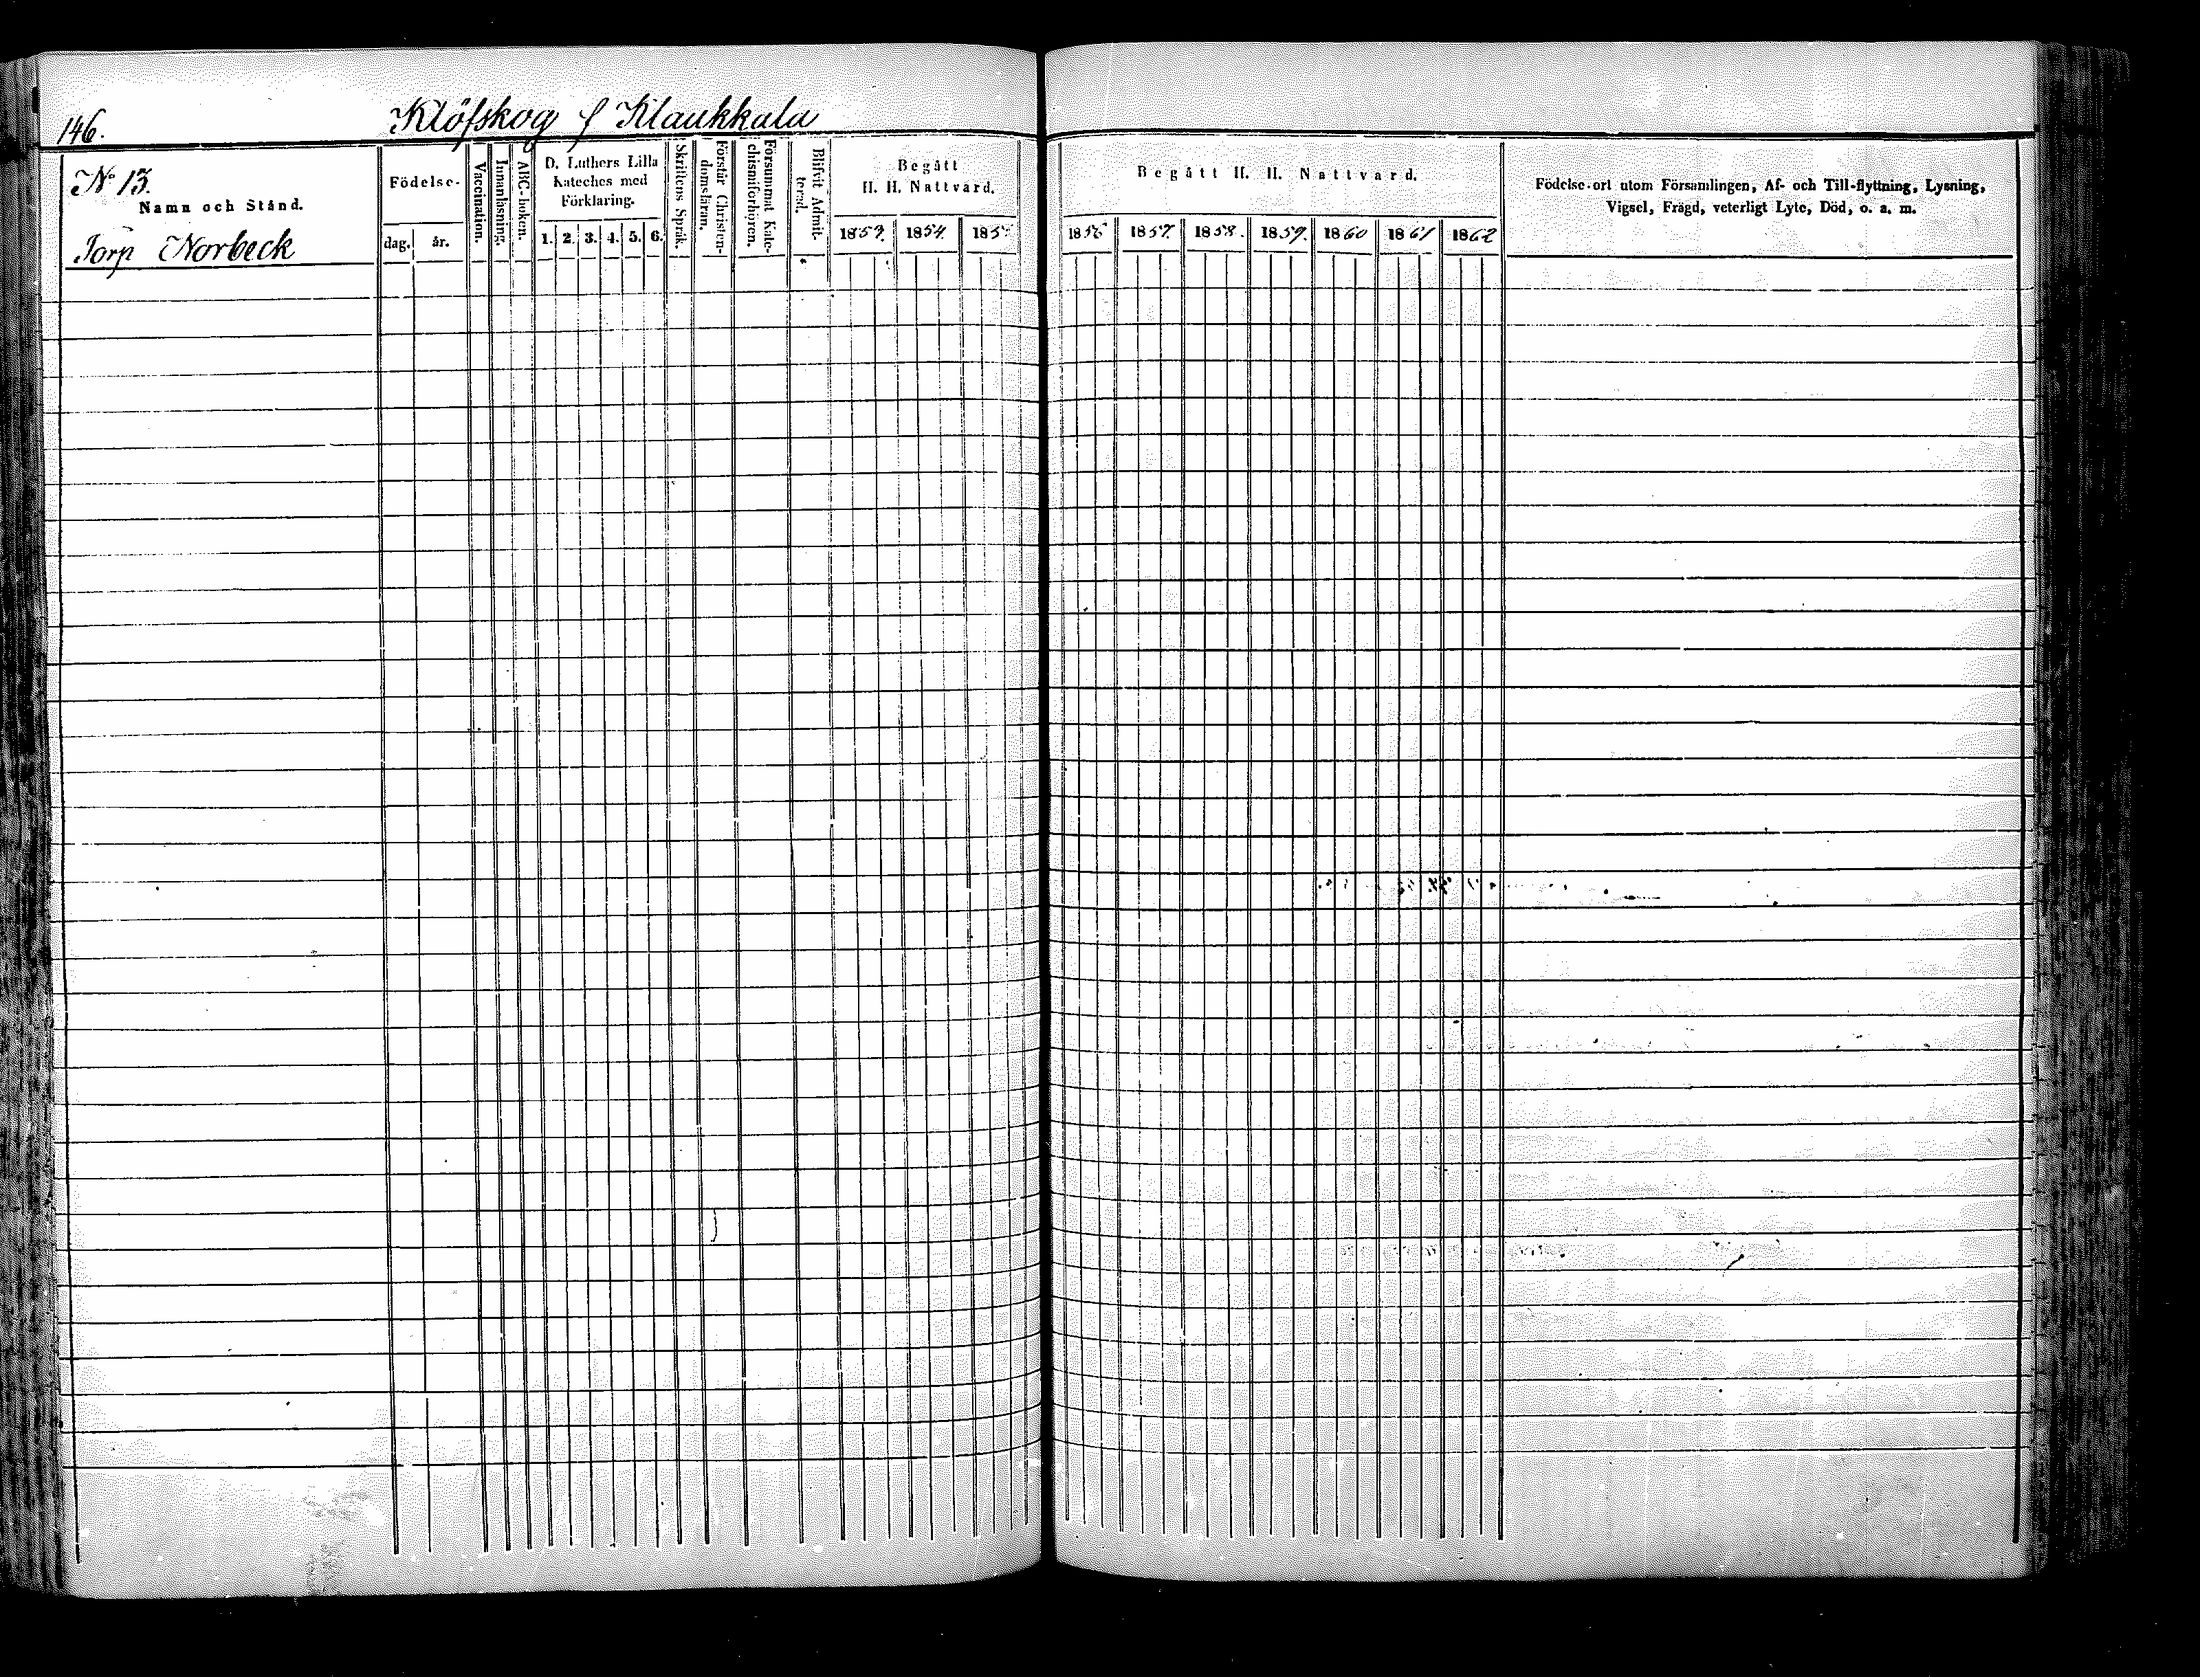 146.
Klöfskog f Klaukkala
No 13.
Namn och Stånd.
Torp Norbeck
Födelse-
dag. år.
Vaccination.
Innanläsning.
ABC-boken.
D. Luthers Lilla
Kateches med
Förklaring.
1. 2. 3. 4. 5. 6.
Skriftens Språk.
Förstår Christen-
domsläran.
Försummat Kate-
chismiförhören.
Blifvit Admit-
terad.
Begått
H. H. Nattvard.
1853. 1854. 1855.
Begått H. H. Nattvard.
1856 1857. 1858. 1859. 1860 1861 1862
Födelse-ort utom Församlingen, Af- och Till-flyttning, Lysning,
Vigsel, Frägd, veterligt Lyte, Död, o. a. m.